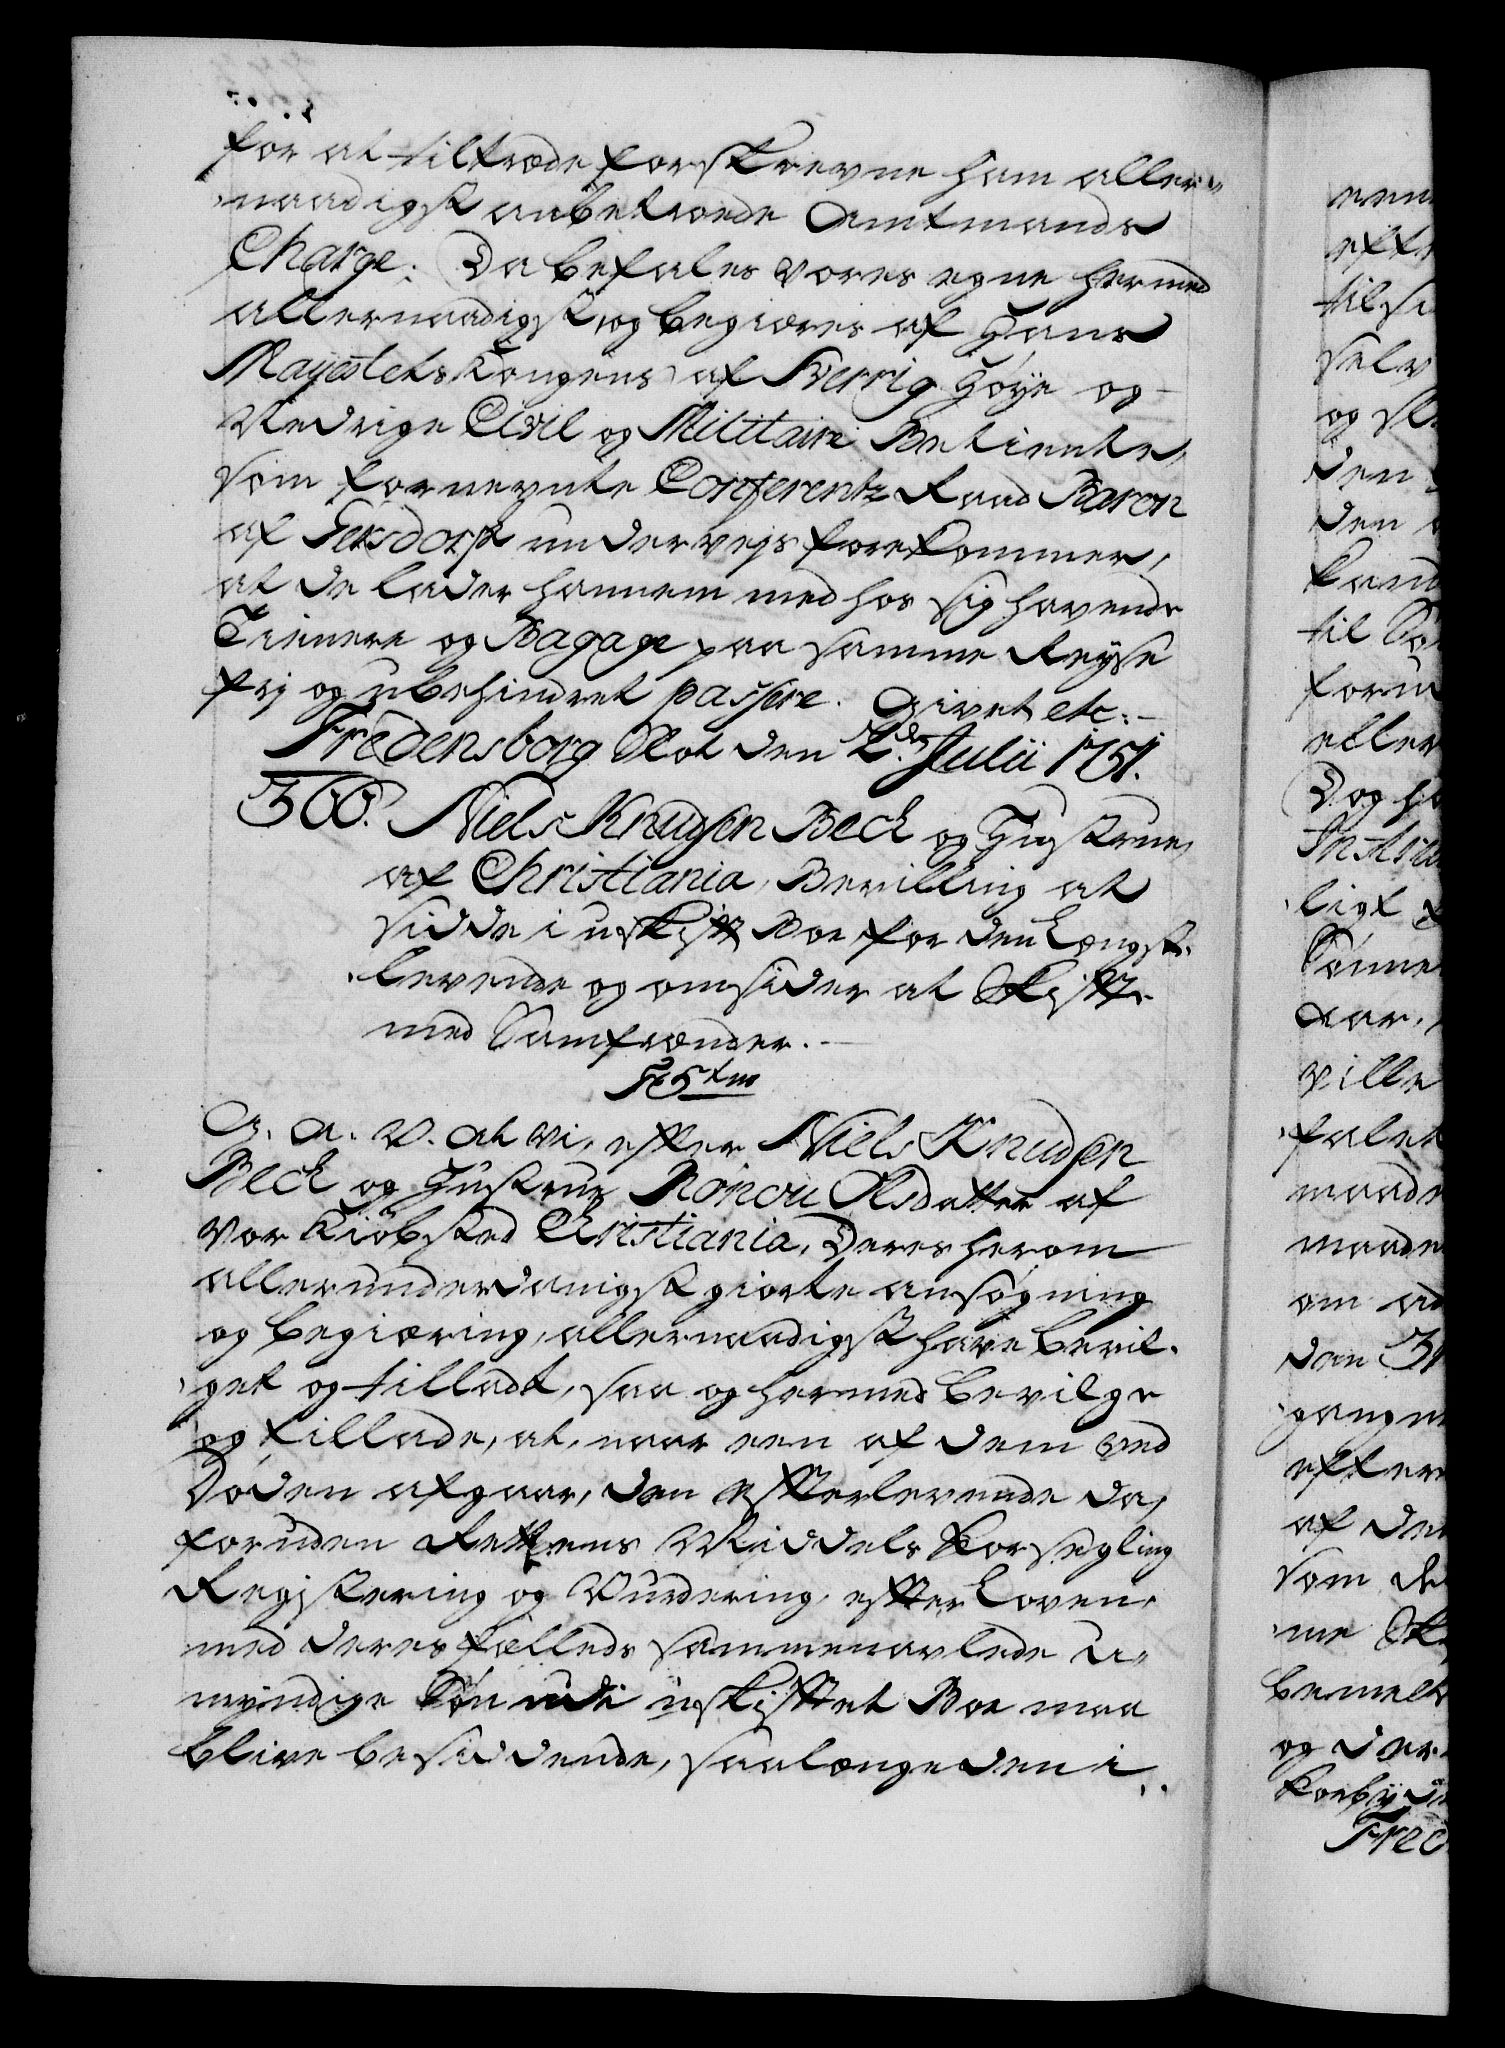 for at tiltræde forskrevne ham aller-
naadigst anbetroede Amtmands
Charge; Da befales vores egne hermed
allernaadigst, og begiæres af Hans
Mayestets Kongens af Sverrig Høye og
Nedrige Civil og Militaire Betiente,
som fornevnte Conferentz Raad Baron
af Gersdorf undervejs forekommer,
at de lader hannem med hos sig havende
Tienere og Bagage paa samme Reyse
frj og ubehindret passere. Givet etc:
Fredensborg Slot den 2den Julii 1751.
366. Niels Knudsen Beck og Hustrue
af Christiania, Bevilling at
sidde i uskift Boe for den Længst-
levende og omsider at Skifte
med Samfrænder.
F 5tm
G. A. V. at vi, efter Niels Knudsen
Beck og Hustrue Olsdatter af
vor Kiøbsted Christiania, Deres herom
allerunderdanigst giorte ansøgning
og begiæring, allernaadigst have bevil-
get og tilladt, saa og hermed bevilge
og tillade, at, naar een af dem ved
Døden afgaar, den efterlevende da,
foruden Rettens Middels Forsegling
Registering og Vurdering, efter Loven,
med deres fælleds sammenavlede u-
myndige Søn udi uskiftet Boe maa
blive besiddende, saalænge den i